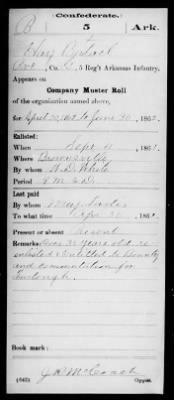 Confederate.
B 5 Ark.
Pvt, Co. , 5 Reg't Arkansas Infantry.
Appears on
Company Muster Roll
of the organization named above,
for April 30, 1862 to June 30, 1862.
Enlisted:
When Sept 4, 1861.
Where Brownsville
By whom
Period
Last paid
By whom
To what time Apr 30, 1862.
Present or absent Present
Remarks: Over 35 years old. re-
enlisted & Entitled to Bounty
and commutation for
furlough.
Book mark:
(642) Copyist.